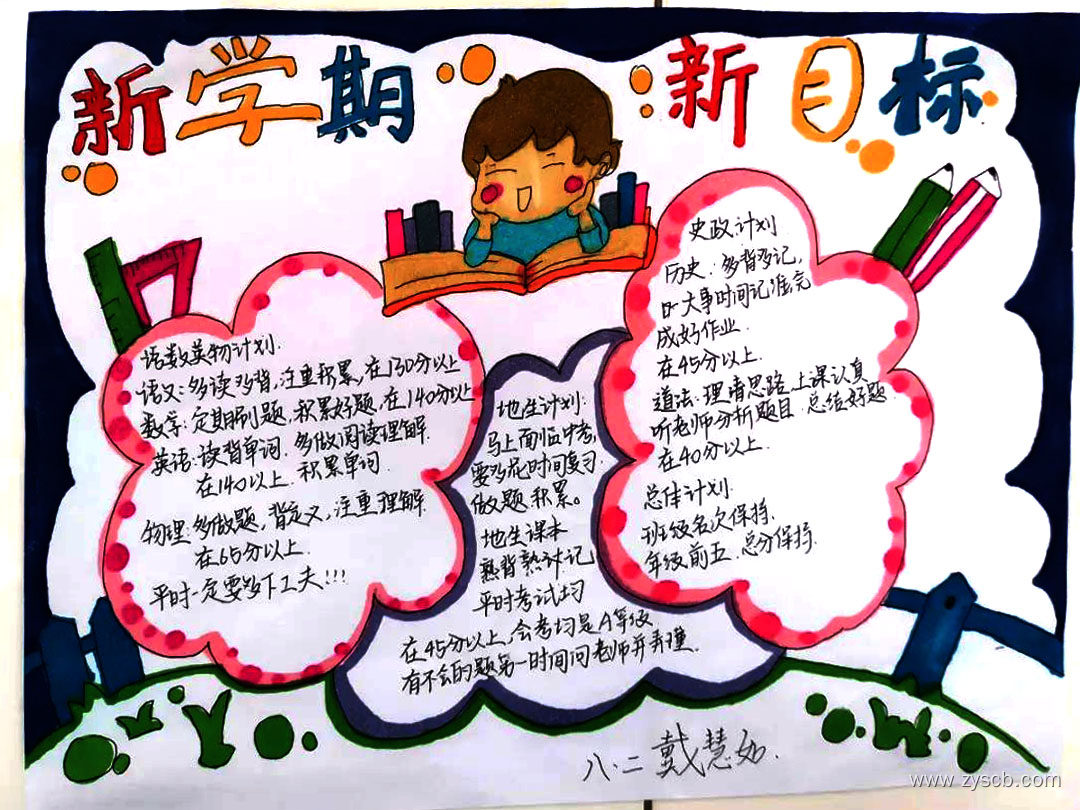 新学期 新目标
语数英物计划.
语文:多读多背,注重积累,在130分以上
数学:定期刷题,积累好题,在140分以上
英语:读背单词.多做阅读理解.
在140以上.积累单词.
物理:多做题,背定义,注重理解.
在65分以上.
平时一定要多下工夫!!!
地生计划:
马上面临中考,
要多花时间复习.
做题.积累。
地生课本
熟背熟计记
平时考试均
在45分以上,会考均是A等级
有不会的题第一时间问老师并弄懂.
史政计划
历史:多背多记,
大事时间记准完
成好作业.
在45分以上.
道法:理清思路.上课认真
听老师分析题目.总结好题.
在40分以上.
总体计划.
班级名次保持.
年级前五.总分保持.
八.二 戴慧如.
www.zyscb.com